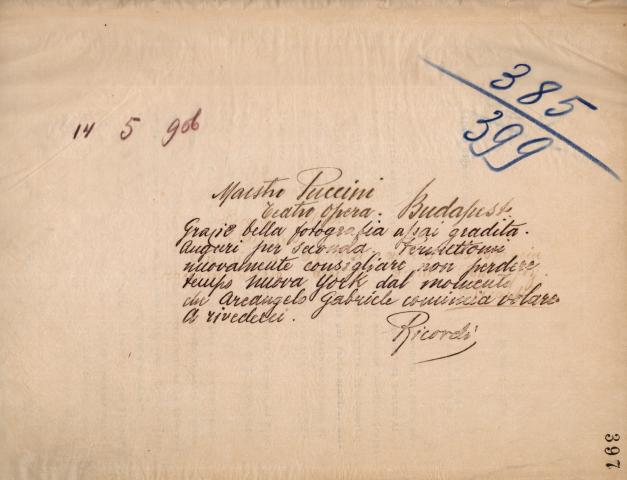 385
399
14 5 906
Maestro Puccini
Teatro Opera. Budapest
Grazie bella fotografia assai gradita.
Auguri per seconda. Permettomi
nuovamente consigliare non perdere
tempo nuova York dal momento
chi Arcangelo Gabriele comincia volare
A rivederci.
Ricordi
397